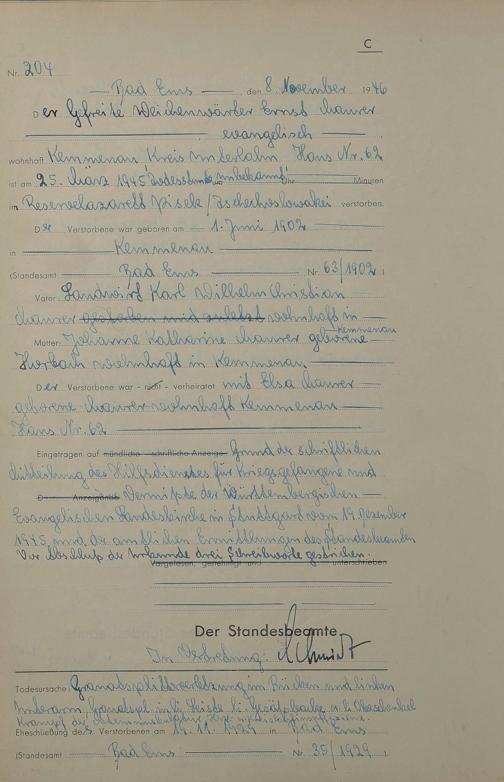 C
Nr. 204
Bad Ems, den 8. November 1946
Der Gefreite Weichenwärter Ernst Maurer
evangelisch
wohnhaft Kemmenau Kreis Unterlahn, Haus Nr. 62
ist am 25. März 1945 Todesstunde unbekannt Uhr Minuten
im Reservelazarett Pisek / Tschechoslowakei verstorben.
Der Verstorbene war geboren am 1. Juni 1902
in Kemmenau
(Standesamt Bad Ems Nr. 63/1902)
Vater: Landwirt Karl Wilhelm Christian
Maurer gestorben und zuletzt wohnhaft in
Kemmenau
Mutter: Johanne Katharine Maurer geborene
wohnhaft in Kemmenau
Der Verstorbene war - nicht - verheiratet mit Elsa Maurer
geborene Maurer wohnhaft Kemmenau
Haus Nr. 62
Eingetragen auf mündliche - schriftliche Anzeige Grund der schriftlichen
Mitteilung des Hilfsdienstes für Kriegsgefangene und
D Anzeigende Vermißte der Württembergischen
Evangelischen Landeskirche in Stuttgart vom 19. Dezember
1945 und der amtlichen Ermittlungen des Standesbeamten
Vor Abschluß der Urkunde drei gestrichen.
Vorgelesen, genehmigt und unterschrieben
Der Standesbeamte
In Vertretung: Schmidt
Todesursache: Granatsplitterverletzung im Rücken und linken
Unterarm, Granatspl. in li. u. li. Oberschenkel
Eheschließung des Verstorbenen am 19. 11. 1929 in Bad Ems
(Standesamt Bad Ems Nr. 35/1929)